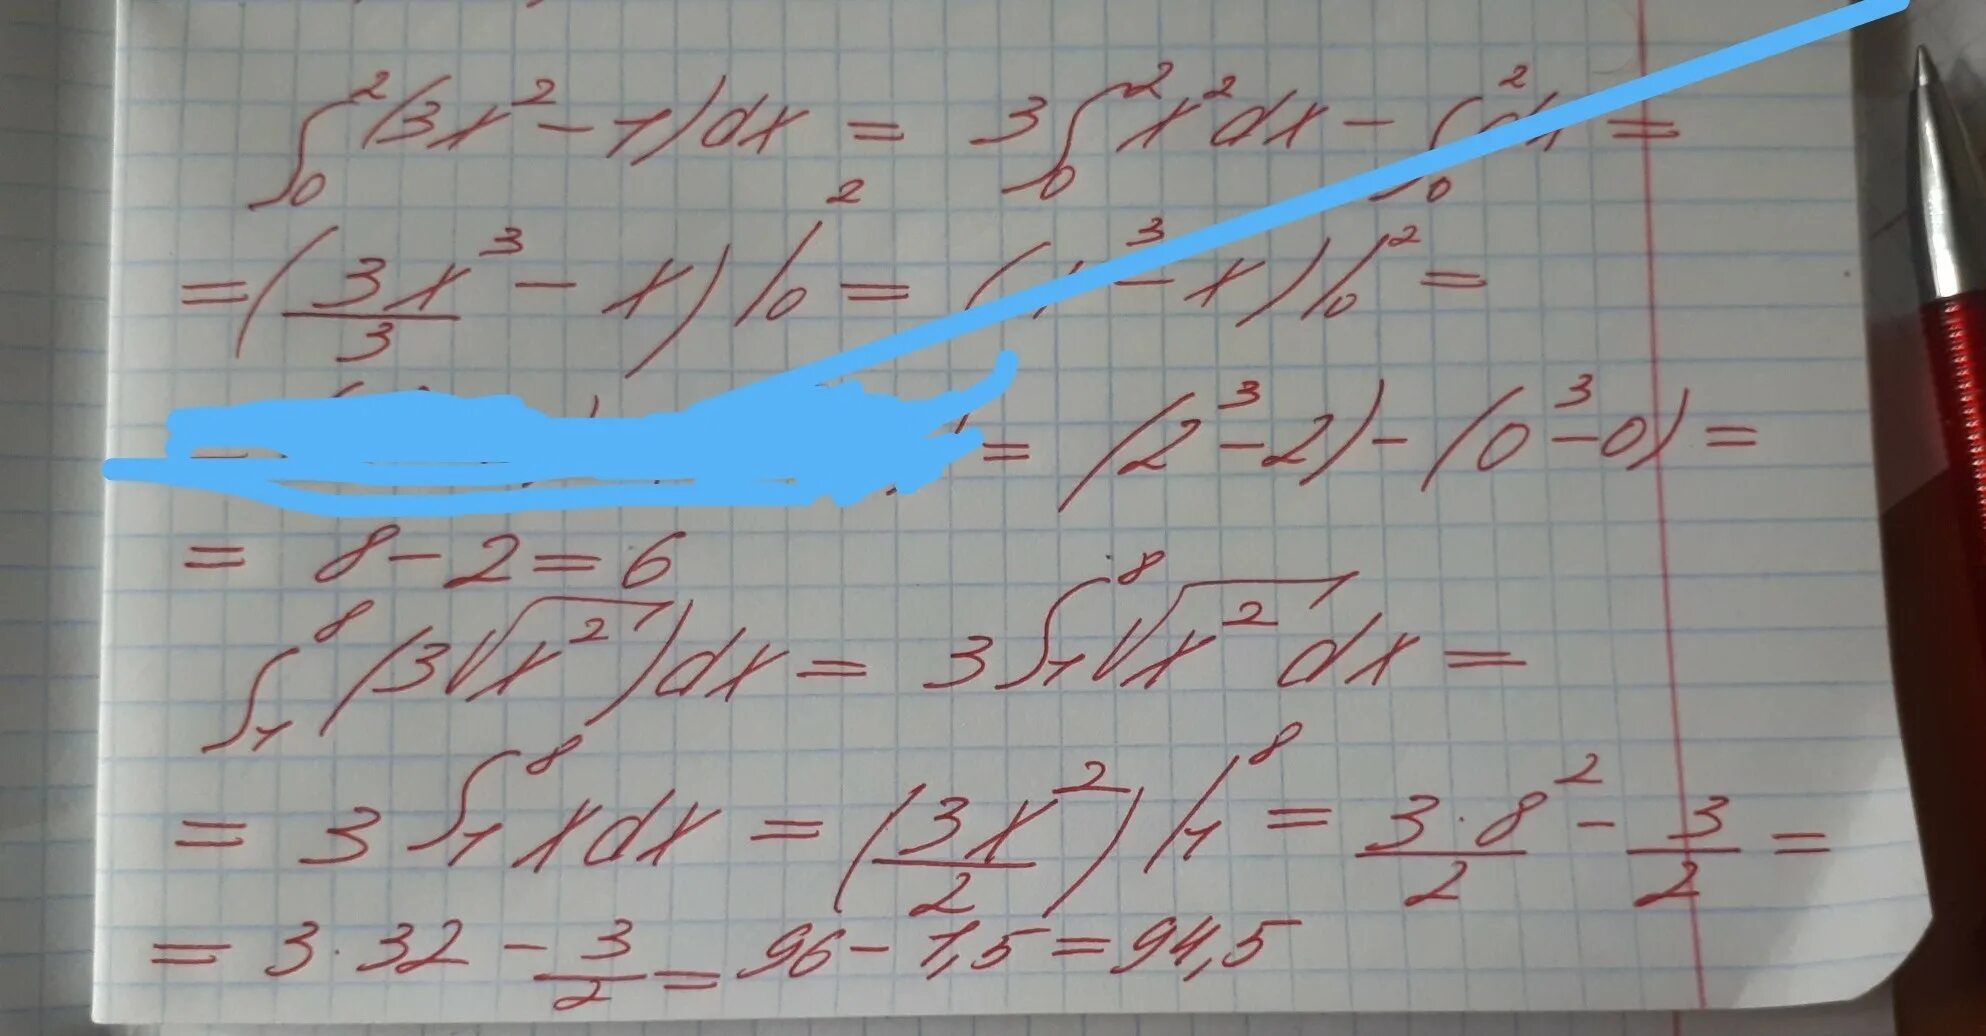 ∫₀²(3x²-1)dx = 3∫₀²x²dx - ∫₀²dx =
= (3x³/3 - x)|₀² = (x³ - x)|₀² =
= (2³-2)-(0³-0) =
= 8-2=6
∫₁⁸(3√x²)dx = 3∫₁⁸√x² dx =
= 3∫₁⁸xdx = (3x²/2)|₁⁸ = 3·8²/2 - 3/2 =
= 3·32 - 3/2 = 96-1,5=94,5